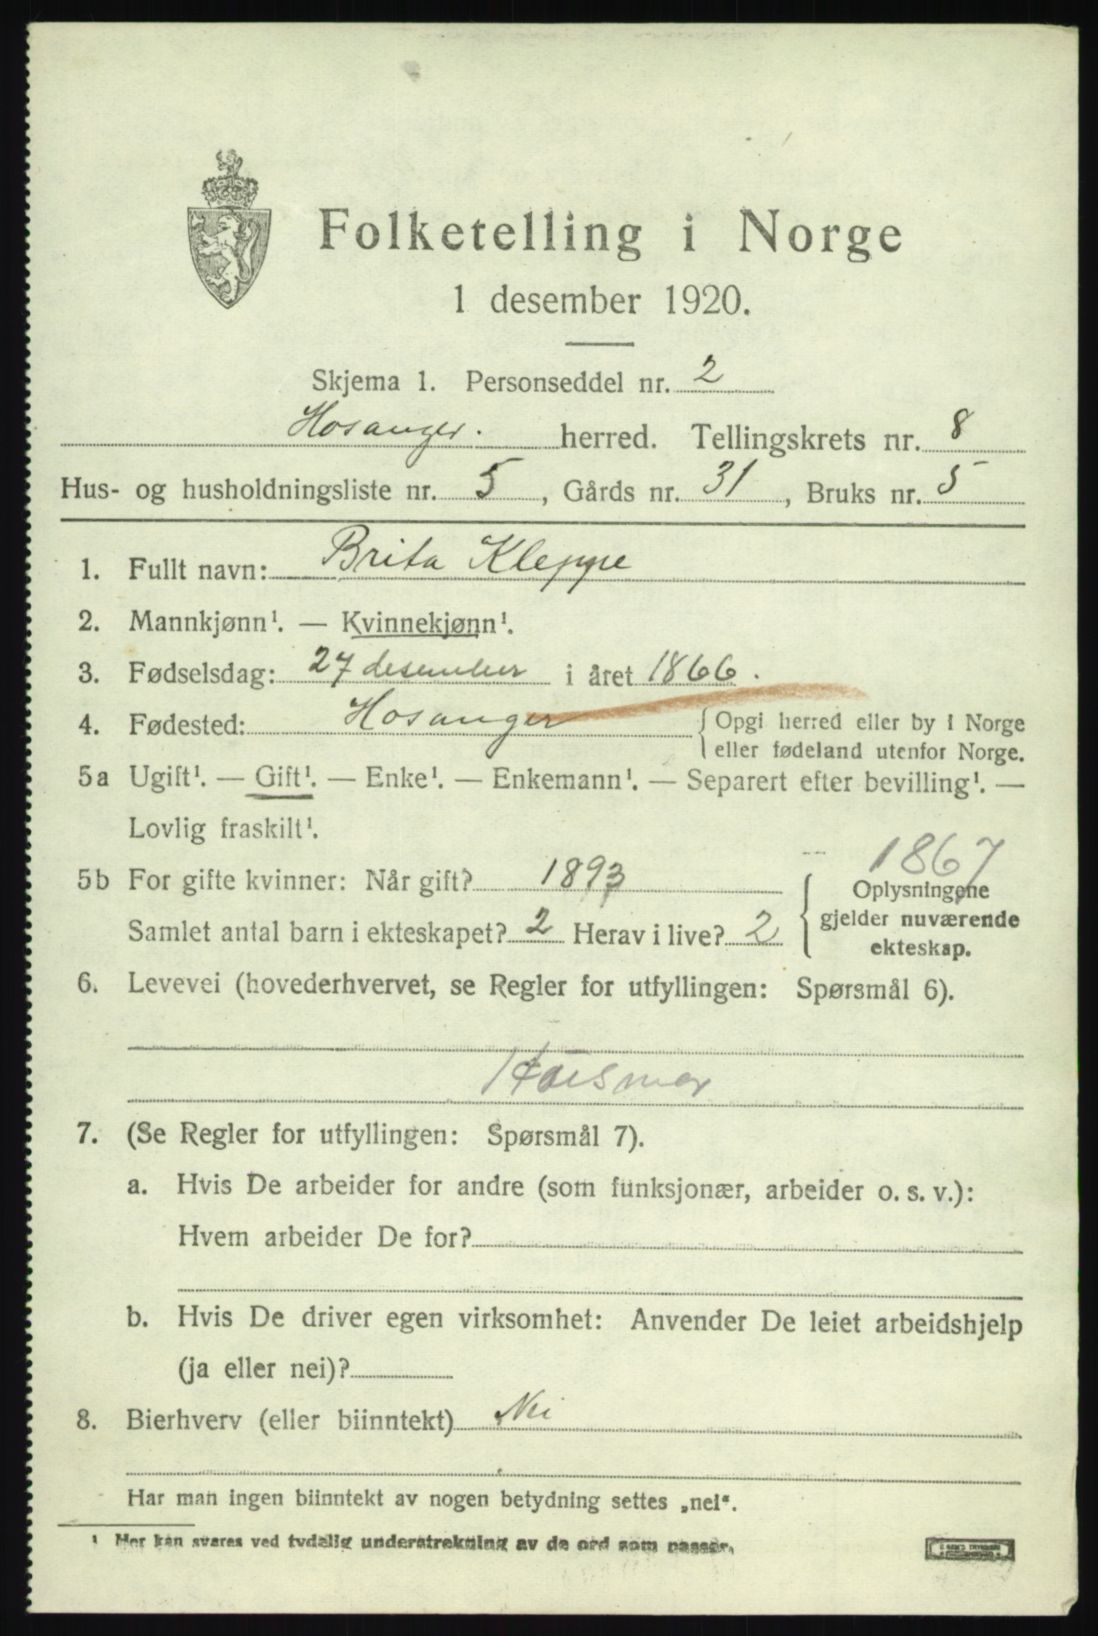 Folketelling i Norge
1 desember 1920.
Skjema 1. Personseddel nr. 2
Hosanger. herred. Tellingskrets nr. 8
Hus- og husholdningsliste nr. 5, Gårds nr. 31, Bruks nr. 5
1. Fullt navn: Brita Kleppe
2. Mannkjønn¹. — Kvinnekjønn¹.
3. Fødselsdag: 27 desember i året 1866.
4. Fødested: Hosanger {Opgi herred eller by i Norge
eller fødeland utenfor Norge.
5a Ugift¹. — Gift¹. — Enke¹. — Enkemann¹. — Separert efter bevilling¹. —
Lovlig fraskilt¹.
1867
5b For gifte kvinner: Når gift? 1893 Oplysningene
gjelder nuværende
Samlet antal barn i ekteskapet? 2 Herav i live? 2 ekteskap.
6. Levevei (hovederhvervet, se Regler for utfyllingen: Spørsmål 6).
7. (Se Regler for utfyllingen: Spørsmål 7).
a. Hvis De arbeider for andre (som funksjonær, arbeider o. s. v.):
Hvem arbeider De for?
b. Hvis De driver egen virksomhet: Anvender De leiet arbeidshjelp
(ja eller nei)?
8. Bierhverv (eller biinntekt) Nei
Har man ingen biinntekt av nogen betydning settes „nei“.
¹ Her kan svares ved tydelig understrekning av de ord som passer.